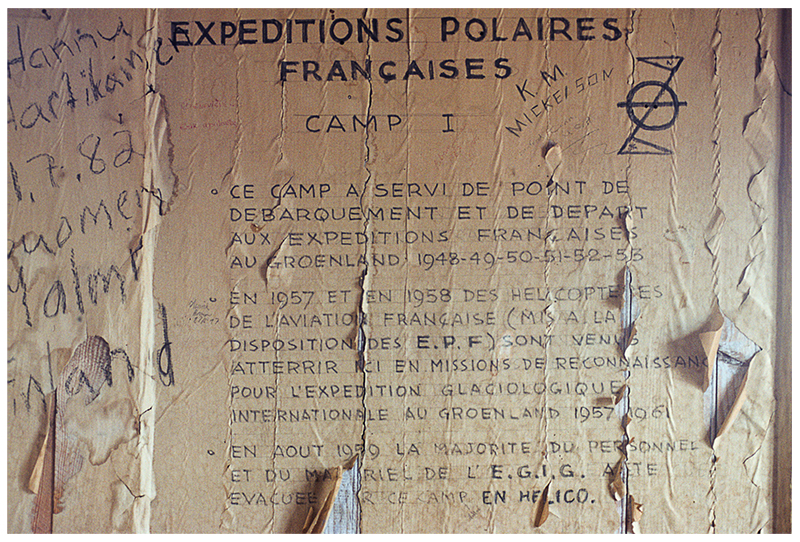 EXPEDITIONS POLAIRES
FRANÇAISES
CAMP I
K.M.
MICKELSON
Hannu
Hartikainen
1.7.82
Suomen
nland
• CE CAMP A SERVI DE POINT DE
DEBARQUEMENT ET DE DEPART
AUX EXPEDITIONS FRANÇAISES
AU GROENLAND 1948-49-50-51-52-53
• EN 1957 ET EN 1958 DES HELICOPTERES
DE L'AVIATION FRANÇAISE (MIS A LA
DISPOSITION DES E.P.F) SONT VENUS
ATTERRIR ICI EN MISSIONS DE RECONNAISSANC
POUR L'EXPEDITION GLACIOLOGIQUE
INTERNATIONALE AU GROENLAND 1957 196
• EN AOUT 1959 LA MAJORITE DU PERSONNEL
ET DU MATERIEL DE L'E.G.I.G. A ETE
EVACUEE CE CAMP EN HELICO.